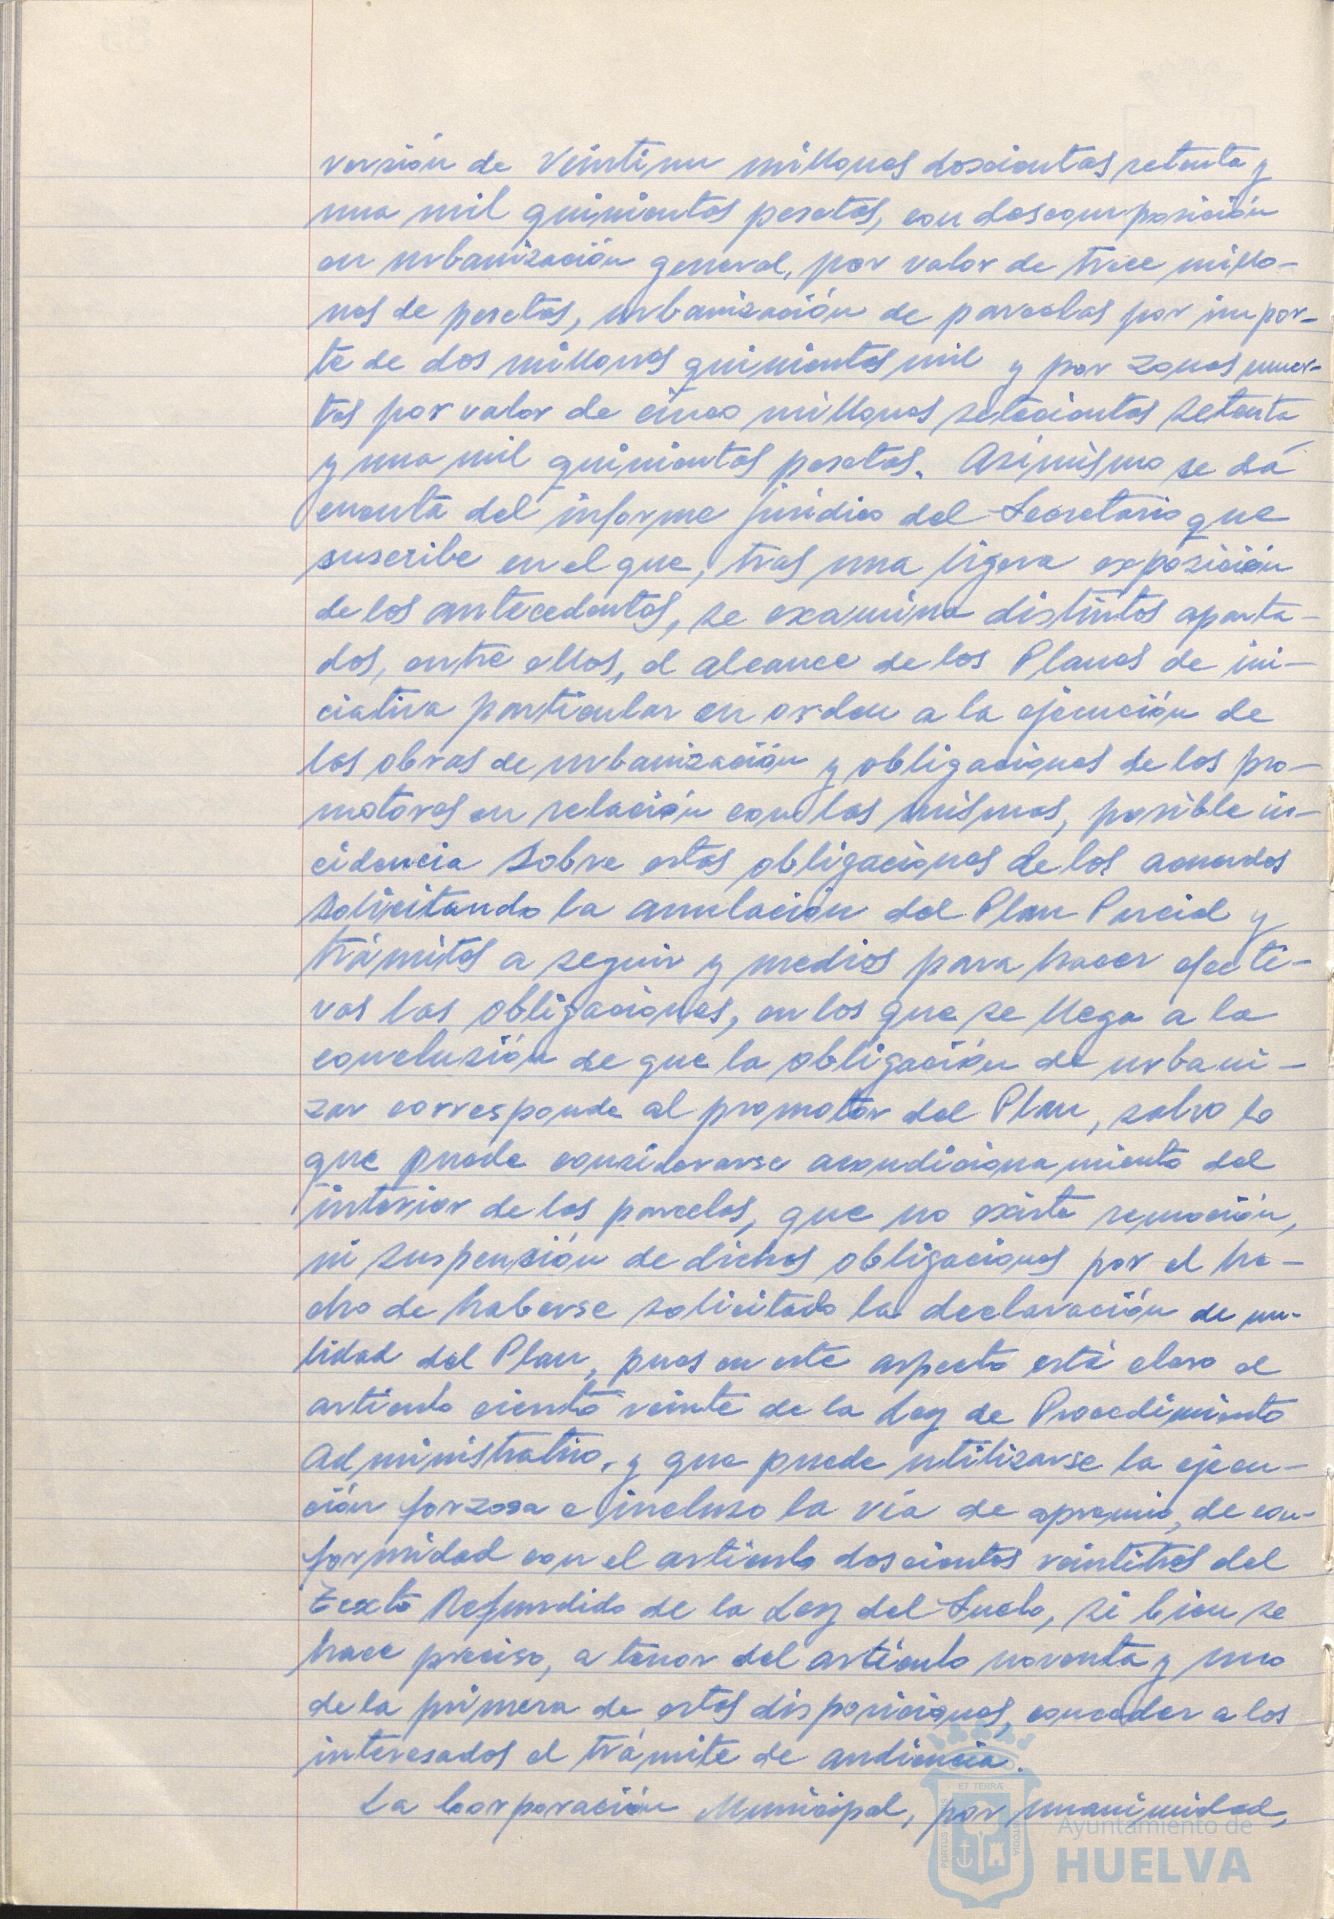 versión de veintiun millones doscientas setenta y
una mil quinientas pesetas, con descomposición
en urbanización general, por valor de trece millo-
nes de pesetas, urbanización de parcelas por impor-
te de dos millones quinientas mil y por zonas muer-
tas por valor de cinco millones setecientas setenta
y una mil quinientas pesetas. Asimismo se dá
cuenta del informe jurídico del Secretario que
suscribe en el que, tras una ligera exposición
de los antecedentes, se examina distintos aparta-
dos, entre ellos, el alcance de los Planes de ini-
ciativa particular en orden a la ejecución de
las obras de urbanización y obligaciones de los pro-
motores en relación con las mismas, posible in-
cidencia sobre estas obligaciones de los acuerdos
solicitando la anulación del Plan Parcial y
trámites a seguir y medios para hacer efecti-
vas las obligaciones, en los que se llega a la
conclusión de que la obligación de urbani-
zar corresponde al promotor del Plan, salvo lo
que puede considerarse acondicionamiento del
interior de las parcelas, que no existe remoción,
ni suspensión de dichas obligaciones por el he-
cho de haberse solicitado la declaración de nu-
lidad del Plan, pues en este aspecto está claro el
artículo ciento veinte de la Ley de Procedimiento
Administrativo, y que puede utilizarse la ejecu-
ción forzosa e incluso la vía de apremio, de con-
formidad con el artículo doscientos veintitres del
Texto Refundido de la Ley del Suelo, si bien se
hace preciso, a tenor del artículo noventa y uno
de la primera de estas disposiciones, conceder a los
interesados el trámite de audiencia.
La Corporación Municipal, por unanimidad,
ET TERRÆ
PORTUS MARIS
CUSTODIA
Ayuntamiento de
HUELVA